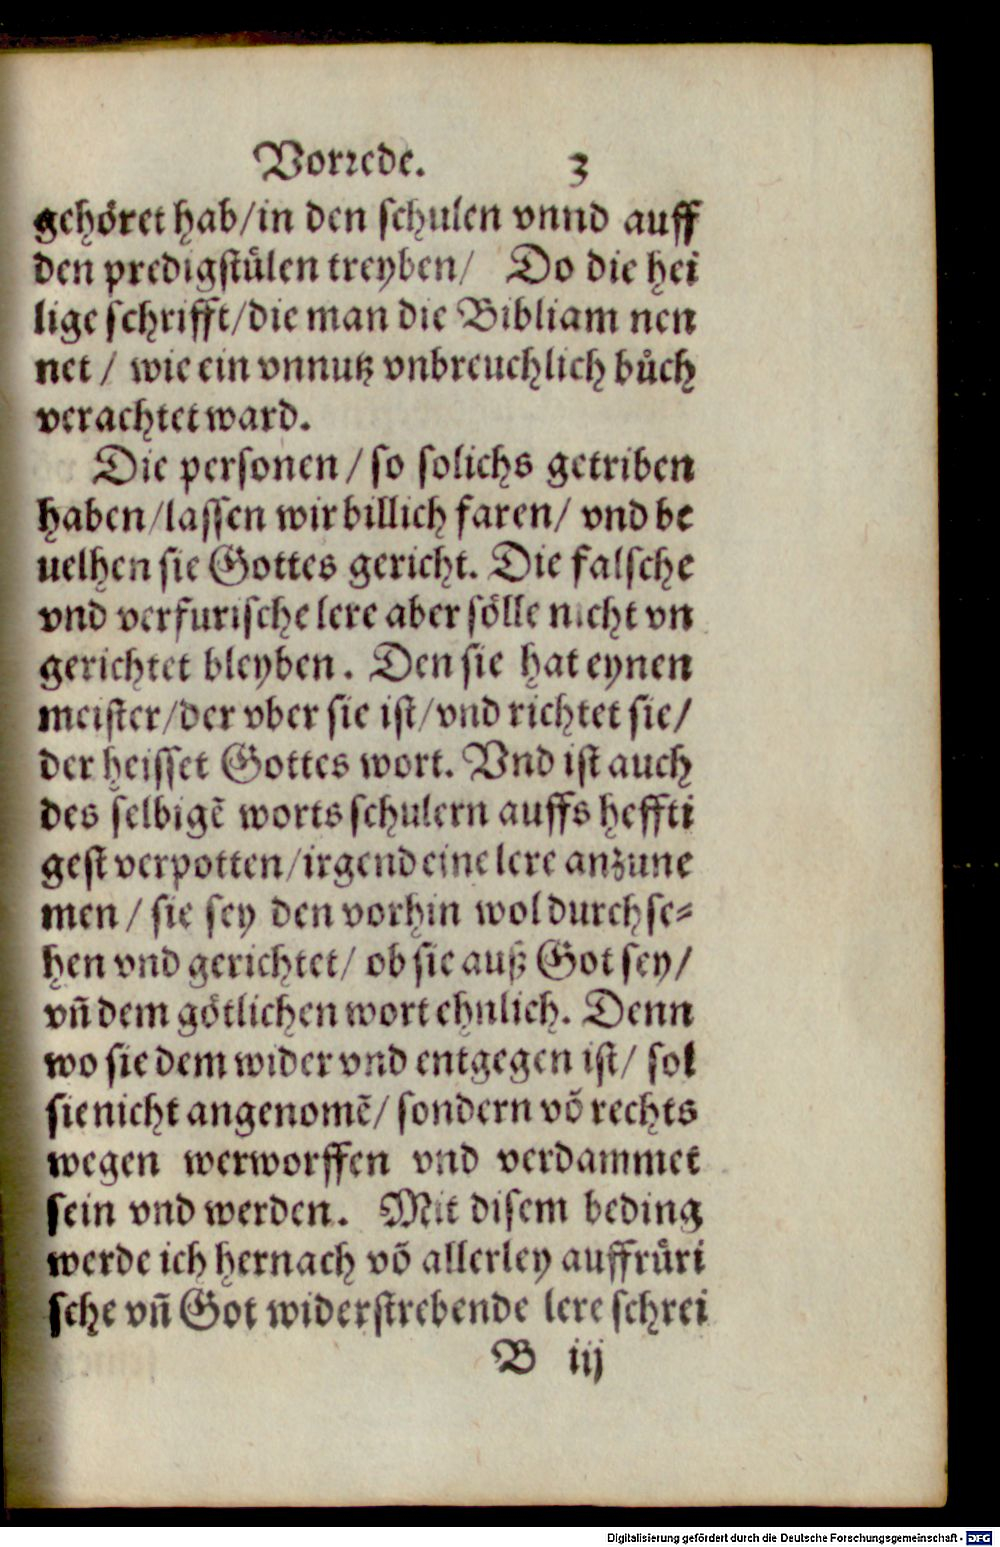 Vorrede. 3
gehöret hab/in den schulen vnnd auff
den predigstülen treyben/ Do die hei
lige schrifft/die man die Bibliam nen
net / wie ein vnnutz vnbreuchlich bůch
verachtet ward.
Die personen / so solichs getriben
haben/lassen wir billich faren/ vnd be
uelhen sie Gottes gericht. Die falsche
vnd verfurische lere aber sölle nicht vn
gerichtet bleyben. Den sie hat eynen
meister/der vber sie ist/vnd richtet sie/
der heisset Gottes wort. Vnd ist auch
des selbigē worts schulern auffs heffti
gest verpotten/irgend eine lere anzune
men / sie sey den vorhin wol durchse⸗
hen vnd gerichtet/ ob sie auß Got sey/
vn̄ dem götlichen wort ehnlich. Denn
wo sie dem wider vnd entgegen ist/ sol
sie nicht angenomē/ sondern vō rechts
wegen werworffen vnd verdammet
sein vnd werden. Mit disem beding
werde ich hernach vō allerley auffrüri
sche vn̄ Got widerstrebende lere schrei
B iij
Digitalisierung gefördert durch die Deutsche Forschungsgemeinschaft - DFG